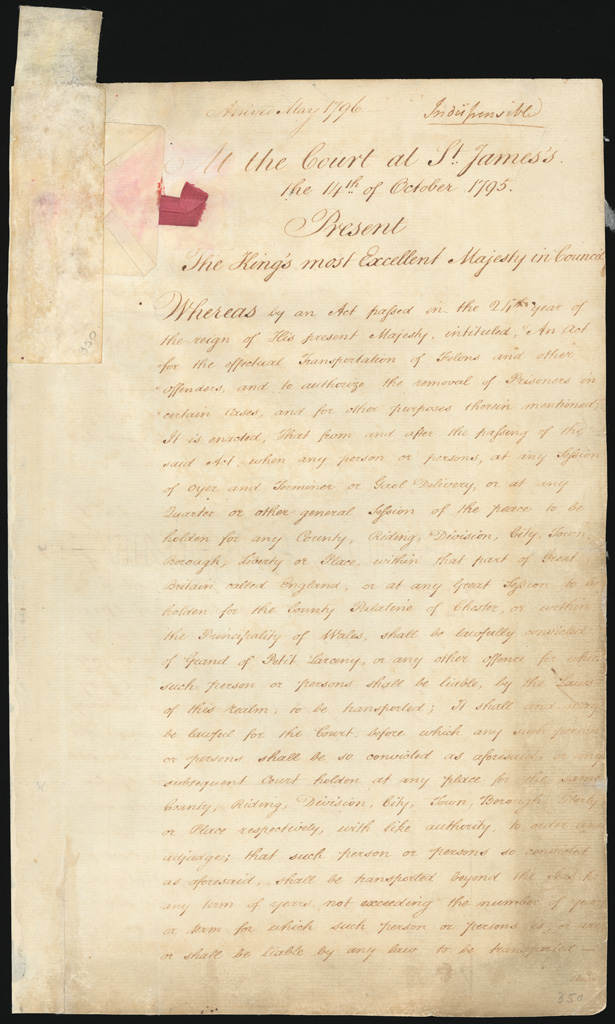 Arrived May 1796
Indispensible
At the Court at St. James's.
the 14th of October 1795.
Present
The King's most Excellent Majesty in Council
Whereas by an Act passed in the 24th year of
the reign of His present Majesty, intituled, "An Act
for the effectual Transportation of Felons and other
Offenders, and to authorize the removal of Prisoners in
certain Cases, and for other purposes therein mentioned;
It is enacted, That from and after the passing of the
said Act, when any person or persons, at any Session
of Oyer and Terminer or Gaol Delivery, or at any
Quarter or other general Session of the peace to be
holden for any County, Riding, Division, City, Town,
Borough, Liberty or Place, within that part of Great
Britain called England, or at any Great Session to be
holden for the County Palatine of Chester, or within
the Principality of Wales, shall be lawfully convicted
of Grand or Petit Larceny, or any other offence for which
such person or persons shall be liable, by the Laws
of this realm, to be transported; It shall and may
be lawful for the Court before which any such person
or persons shall be so convicted as aforesaid, or any
subsequent Court holden at any place for the same
County, Riding, Division, City, Town, Borough, Liberty
or Place respectively, with like authority, to order and
adjudge; that such person or persons so convicted
as aforesaid, shall be transported beyond the Seas for
any term of years, not exceeding the number of years
or term for which such person or persons is or are
or shall be liable by any law to be transported —
350
350